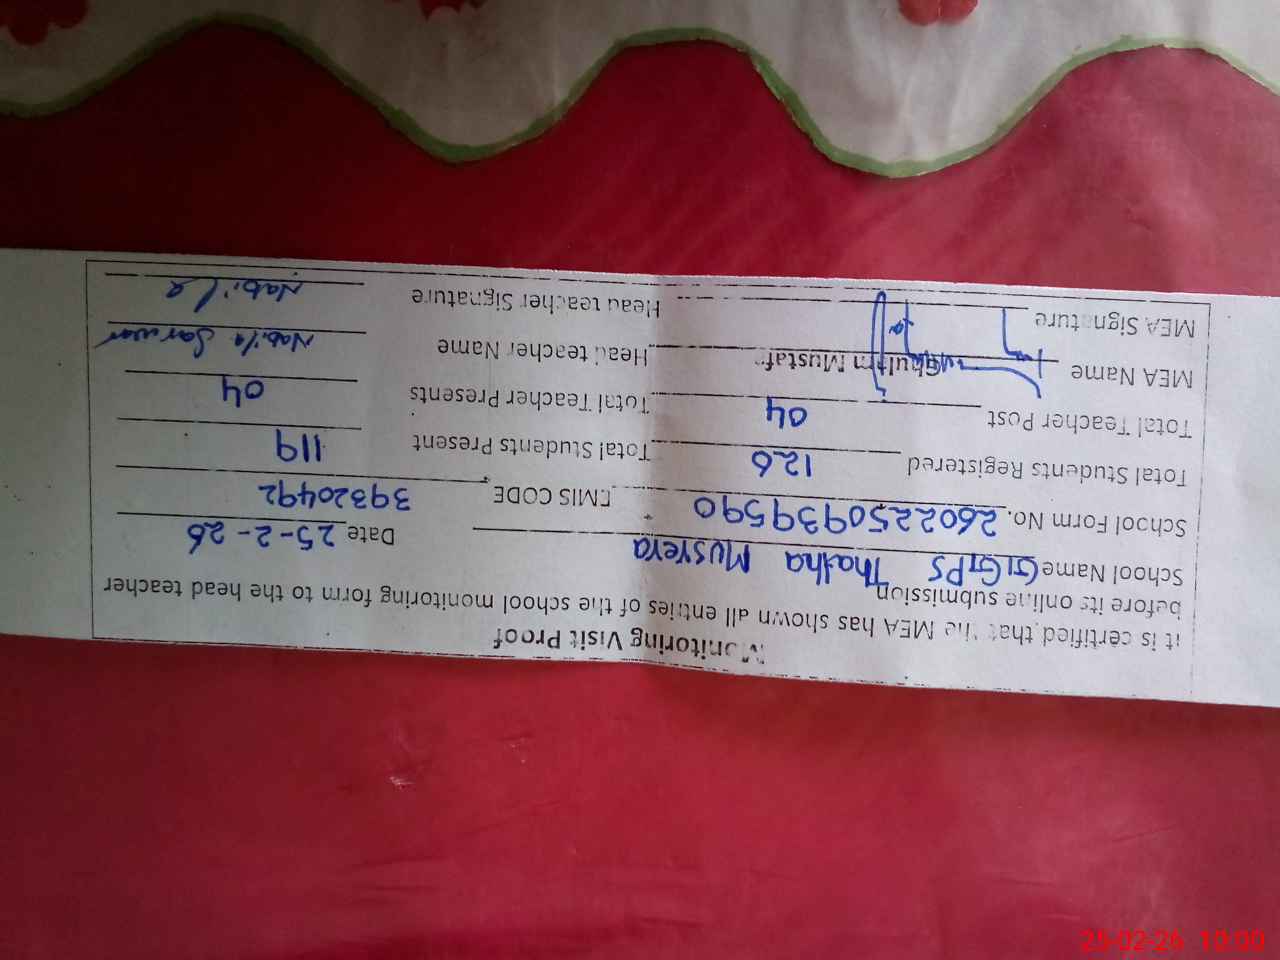 Monitoring Visit Proof
it is certified that the MEA has shown all entries of the school monitoring form to the head teacher
before its online submission
School Name GGPS Thatha Musyera Date 25-2-26
School Form No. 2602250939590 EMIS CODE 39320492
Total Students Registered 126 Total Students Present 119
Total Teacher Post 04 Total Teacher Presents 04
MEA Name Ghulam Mustafa Head teacher Name Nabila Sarwar
MEA Signature Head teacher Signature Nabila
25-02-26 10:00